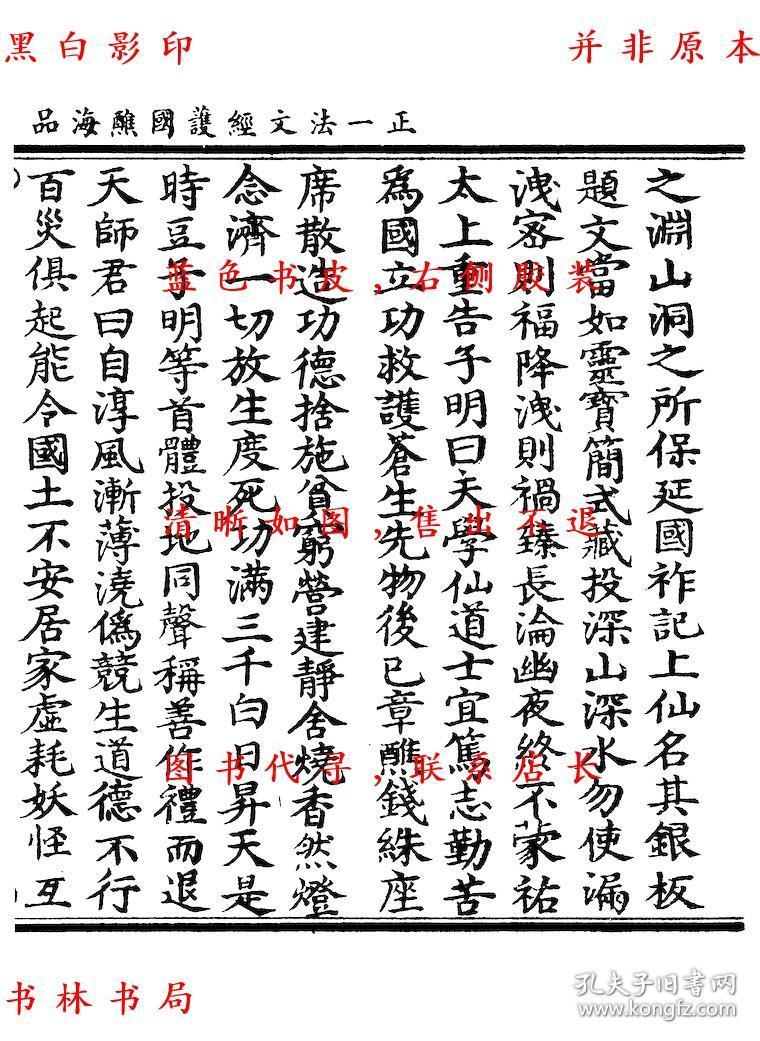 黑白影印
并非原本
正一法文經護國醮海品
之淵山洞之所保延國祚記上仙名其銀板
題文當如靈寶簡式藏投深山深水勿使漏
洩密則福降洩則禍臻長淪幽夜終不蒙祐
太上重告子明曰夫學仙道士宜篤志勤苦
爲國立功救護蒼生先物後已章醮錢絑座
席散造功德捨施貧窮營建靜舍燒香然燈
念濟一切放生度死功滿三千白日昇天是
時豆子明等首體投地同聲稱善作禮而退
天師君曰自淳風漸薄澆僞競生道德不行
百災俱起能令國土不安居家虛耗妖怪互
蓝色书皮,右侧胶装
清晰如图,售出不退
图书代寻,联系店长
书林书局
孔夫子旧书网
www.kongfz.com